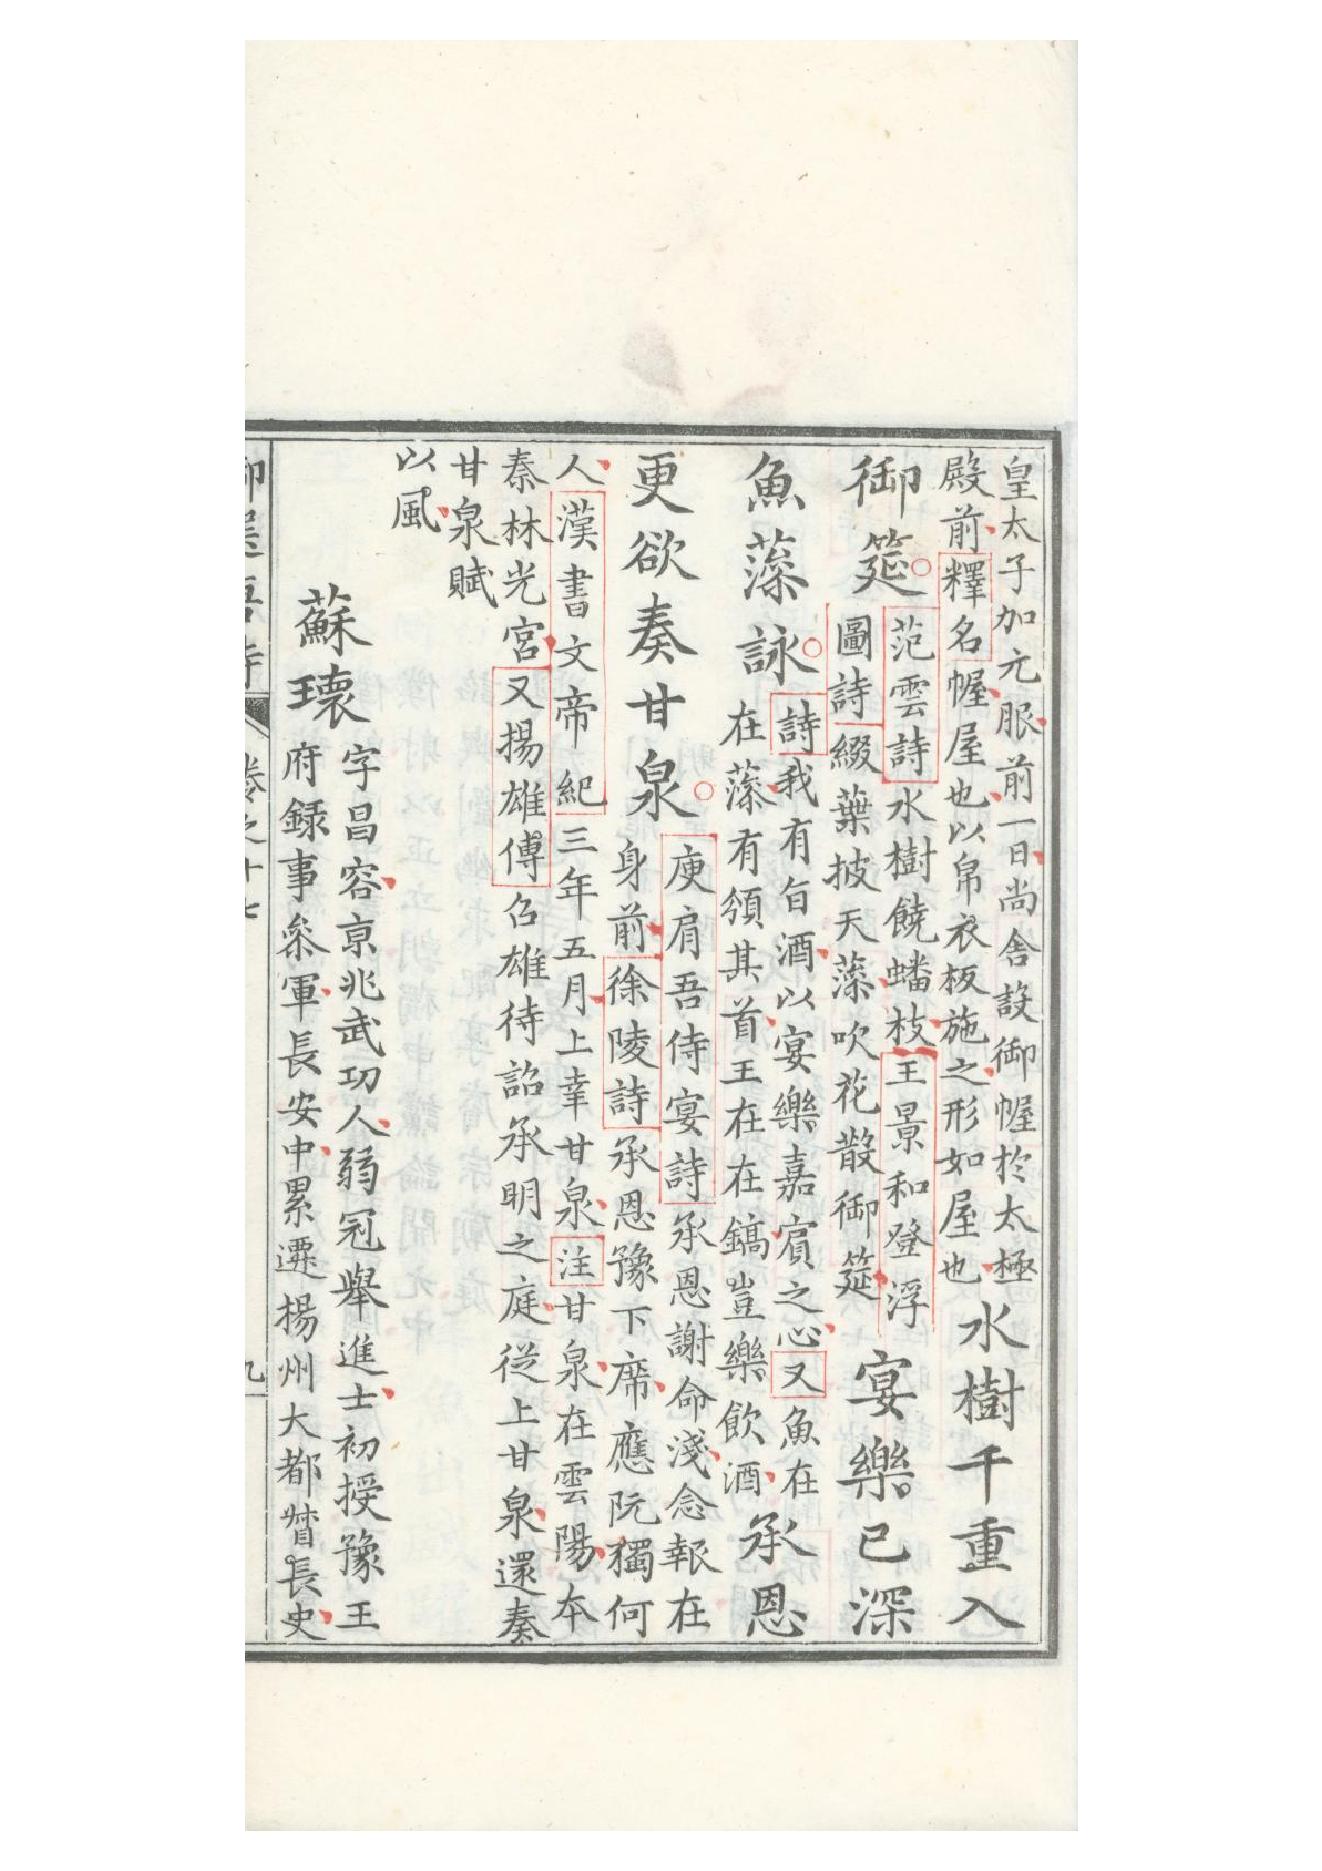 皇太子加元服前一日尚舍設御幄於太極
殿前釋名幄屋也以帛衣板施之形如屋也
水樹千重入
御筵
范雲詩水樹饒蟠枝王景和登浮
圖詩綴葉披天藻吹花散御筵
宴樂已深
魚藻詠
詩我有旨酒以宴樂嘉賓之心又魚在
在藻有頒其首王在在鎬豈樂飲酒
承恩
更欲奏甘泉
庾肩吾侍宴詩承恩謝命淺念報在
身前徐陵詩承恩豫下席應阮獨何
人漢書文帝紀三年五月上幸甘泉注甘泉在雲陽本
秦林光宮又揚雄傳召雄待詔承明之庭從上甘泉還奏
甘泉賦
以風
蘇瓌
字昌容京兆武功人弱冠舉進士初授豫王
府録事叅軍長安中累遷揚州大都督長史
卷之十七
九